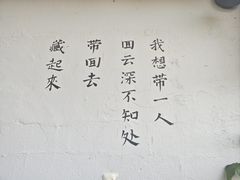 我想带一人
回云深不知处
带回去
藏起來